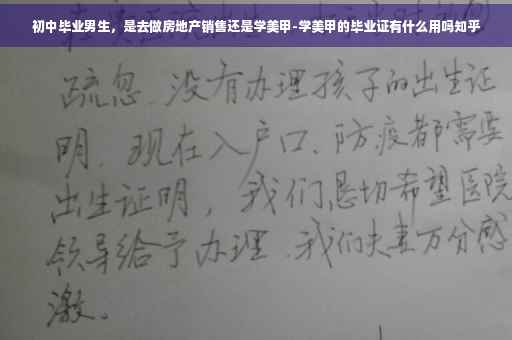 初中毕业男生，是去做房地产销售还是学美甲-学美甲的毕业证有什么用吗知乎
疏忽、没有办理孩子的出生证
明、现在入户口、防疫都需要
出生证明，我们恳切希望医院
领导给予办理、我们夫妻万分感
激。